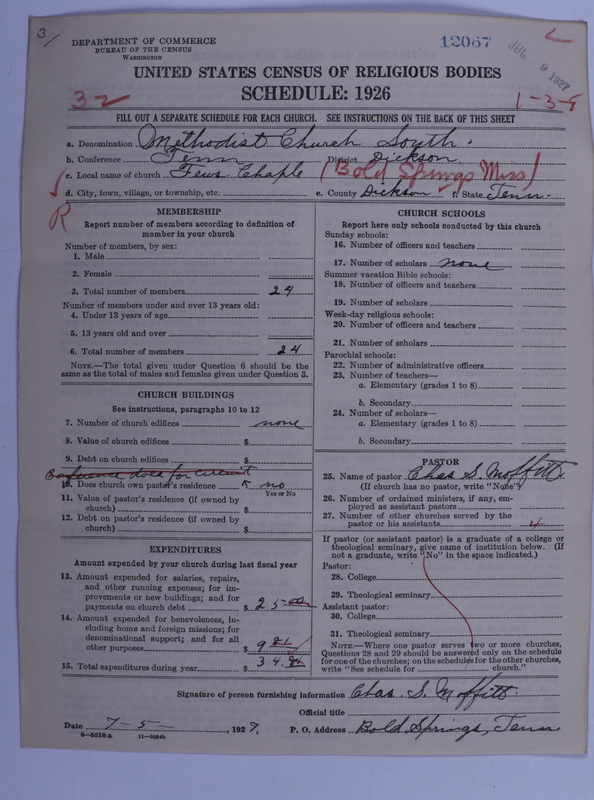 3/
DEPARTMENT OF COMMERCE
BUREAU OF THE CENSUS
WASHINGTON
12067
JUL 9 1927
UNITED STATES CENSUS OF RELIGIOUS BODIES
SCHEDULE: 1926
32
1-3-8
FILL OUT A SEPARATE SCHEDULE FOR EACH CHURCH. SEE INSTRUCTIONS ON THE BACK OF THIS SHEET
a. Denomination Methodist Church South.
b. Conference Tenn District Dickson
c. Local name of church Fews Chaple (Bold Springs Miss)
d. City, town, village, or township, etc. e. County Dickson f. State Tenn.
R
MEMBERSHIP
Report number of members according to definition of
member in your church
Number of members, by sex:
1. Male
2. Female
3. Total number of members 24
Number of members under and over 13 years old:
4. Under 13 years of age
5. 13 years old and over
6. Total number of members 24
NOTE.—The total given under Question 6 should be
same as the total of males and females given under Question 3.
CHURCH BUILDINGS
See instructions, paragraphs 10 to 12
7. Number of church edifices none
8. Value of church edifices $
9. Debt on church edifices $
Conference does for circuit
10. Does church own pastor's residence no
Yes or No
11. Value of pastor's residence (if owned by
church) $
12. Debt on pastor's residence (if owned by
church) $
EXPENDITURES
Amount expended by your church during last fiscal year
13. Amount expended for salaries, repairs,
and other running expenses; for im-
provements or new buildings; and for
payments on church debt $ 25 00
14. Amount expended for benevolences, in-
cluding home and foreign missions; for
denominational support; and for all
other purposes $ 9
15. Total expenditures during year $ 34.
CHURCH SCHOOLS
Report here only schools conducted by this church
Sunday schools:
16. Number of officers and teachers
17. Number of scholars none
Summer vacation Bible schools:
18. Number of officers and teachers
19. Number of scholars
Week-day religious schools:
20. Number of officers and teachers
21. Number of scholars
Parochial schools:
22. Number of administrative officers
23. Number of teachers—
a. Elementary (grades 1 to 8)
b. Secondary
24. Number of scholars—
a. Elementary (grades 1 to 8)
b. Secondary
PASTOR
25. Name of pastor Chas S. Moffitt
(If church has no pastor, write "None")
26. Number of ordained ministers, if any, em-
ployed as assistant pastors
27. Number of other churches served by the
pastor or his assistants 4
If pastor (or assistant pastor) is a graduate of a college or
theological seminary, give name of institution below. (If
not a graduate, write "No" in the space indicated.)
Pastor:
28. College
29. Theological seminary
Assistant pastor:
30. College
31. Theological seminary
NOTE.—Where one pastor serves two or more churches,
Questions 28 and 29 should be answered only on the schedule
for one of the churches; on the schedules for the other churches,
write "See schedule for church."
Signature of person furnishing information Chas. S. Moffitt
Official title
Date 7-5-, 1927. P. O. Address Bold Springs, Tenn
8-5518a 11-9034b